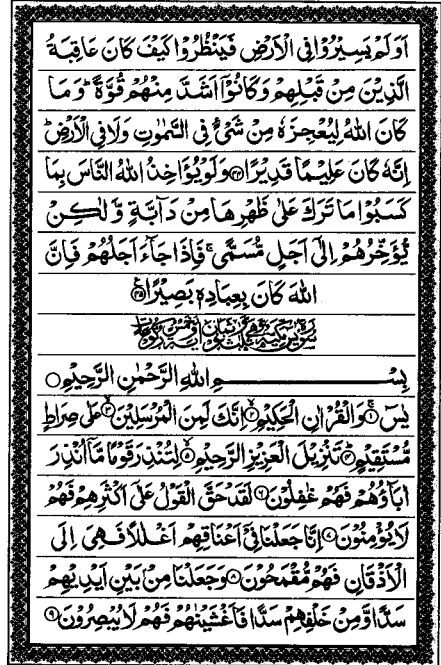 اَوَلَمْ يَسِيْرُوْا فِي الْاَرْضِ فَيَنْظُرُوْا كَيْفَ كَانَ عَاقِبَةُ
الَّذِيْنَ مِنْ قَبْلِهِمْ وَكَانُوْٓا اَشَدَّ مِنْهُمْ قُوَّةً ؕ وَمَا
كَانَ اللهُ لِيُعْجِزَهٗ مِنْ شَيْءٍ فِي السَّمٰوٰتِ وَلَا فِي الْاَرْضِ ؕ
اِنَّهٗ كَانَ عَلِيْمًا قَدِيْرًا ﴿۴۴﴾ وَلَوْ يُؤَاخِذُ اللهُ النَّاسَ بِمَا
كَسَبُوْا مَا تَرَكَ عَلٰى ظَهْرِهَا مِنْ دَآبَّةٍ وَّلٰكِنْ
يُّؤَخِّرُهُمْ اِلٰٓى اَجَلٍ مُّسَمًّى ۚ فَاِذَا جَآءَ اَجَلُهُمْ فَاِنَّ
اللهَ كَانَ بِعِبَادِهٖ بَصِيْرًا ﴿۴۵﴾
بِسْمِ اللهِ الرَّحْمٰنِ الرَّحِيْمِ
يٰسٓ ﴿۱﴾ وَالْقُرْاٰنِ الْحَكِيْمِ ﴿۲﴾ اِنَّكَ لَمِنَ الْمُرْسَلِيْنَ ﴿۳﴾ عَلٰى صِرَاطٍ
مُّسْتَقِيْمٍ ﴿۴﴾ تَنْزِيْلَ الْعَزِيْزِ الرَّحِيْمِ ﴿۵﴾ لِتُنْذِرَ قَوْمًا مَّآ اُنْذِرَ
اٰبَآؤُهُمْ فَهُمْ غٰفِلُوْنَ ﴿۶﴾ لَقَدْ حَقَّ الْقَوْلُ عَلٰٓى اَكْثَرِهِمْ فَهُمْ
لَا يُؤْمِنُوْنَ ﴿۷﴾ اِنَّا جَعَلْنَا فِيْٓ اَعْنَاقِهِمْ اَغْلٰلًا فَهِيَ اِلَى
الْاَذْقَانِ فَهُمْ مُّقْمَحُوْنَ ﴿۸﴾ وَجَعَلْنَا مِنْۢ بَيْنِ اَيْدِيْهِمْ
سَدًّا وَّمِنْ خَلْفِهِمْ سَدًّا فَاَغْشَيْنٰهُمْ فَهُمْ لَا يُبْصِرُوْنَ ﴿۹﴾